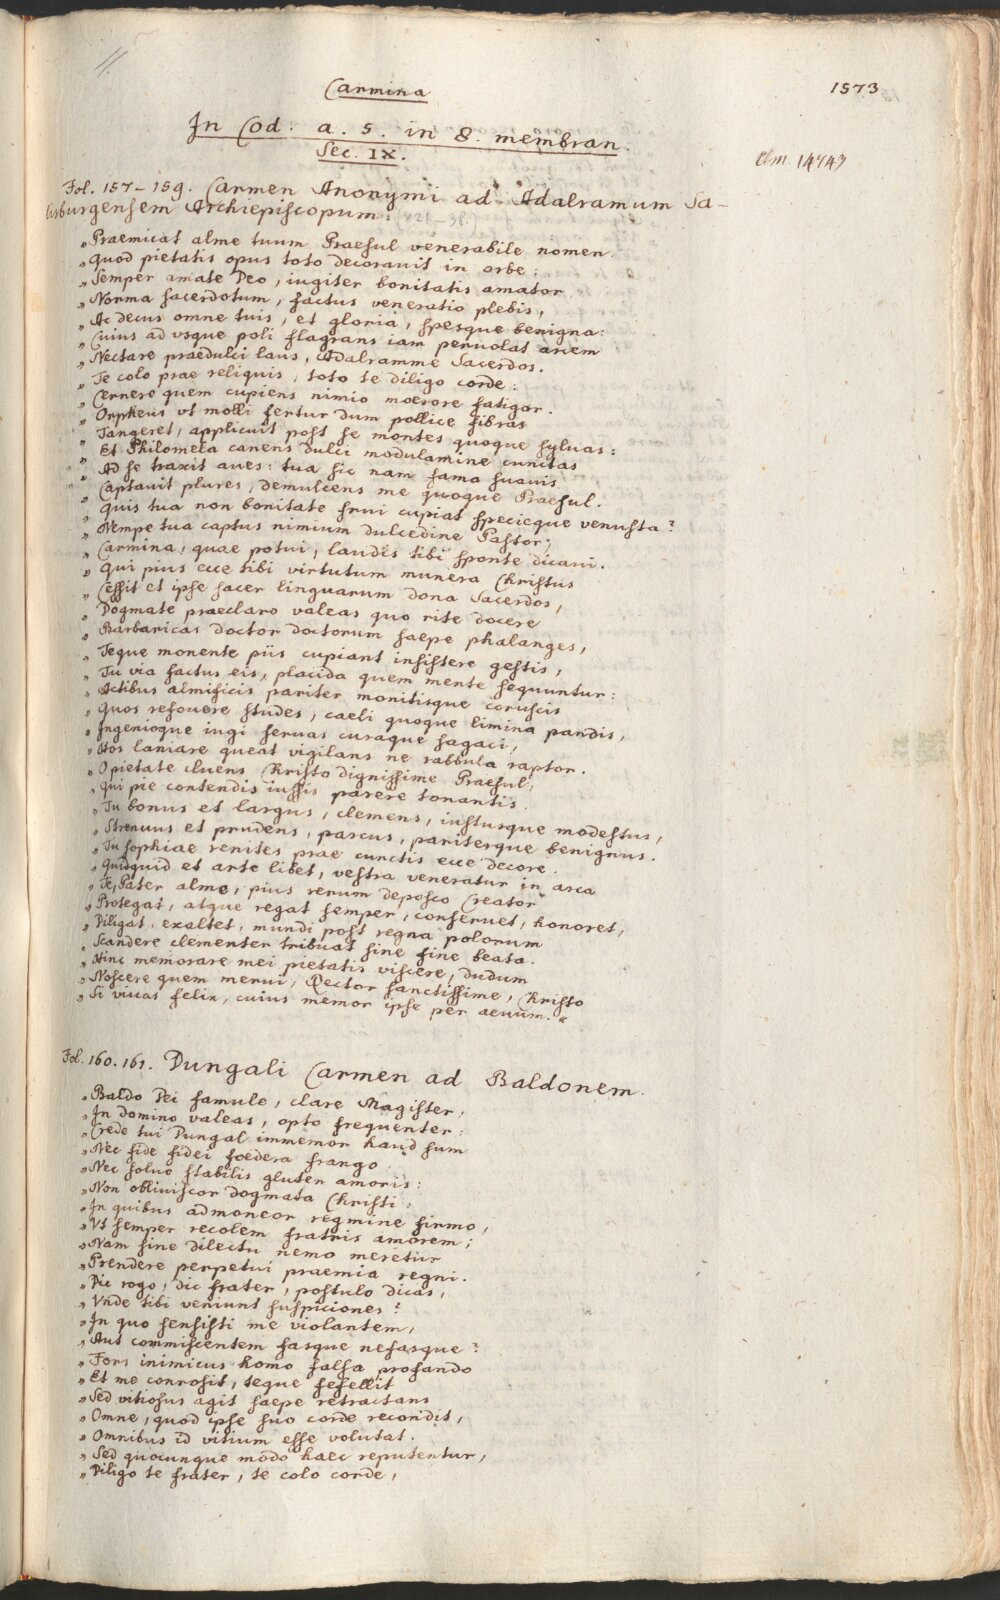 Carmina
1573
In Cod: a. 5. in 8. membran.
Sec. IX.
Clm 14743
Fol. 157–159. Carmen Anonymi ad Adalramum Sa-
lisburgensem Archiepiscopum. (821–36.)
„Praemicat alme tuum Praesul venerabile nomen.
„Quod pietatis opus toto decorauit in orbe:
„Semper amate Deo, iugiter bonitatis amator,
„Norma sacerdotum, factus veneratio plebis,
„Ac decus omne tuis, et gloria, spesque benigna:
„Cuius ad vsque poli flagrans iam peruolat arcem
„Nectare praedulci laus, Adalramme Sacerdos.
„Te colo prae reliquis, toto te diligo corde:
„Cernere quem cupiens nimio moerore fatigor.
„Orpheus vt molli fertur dum pollice fibras
„Tangeret, applicuit post se montes quoque syluas:
„Et Philomela canens dulci modulamine cunctas
„Ad se traxit aues: tua sic nam fama suauis
„Captauit plures, demulcens me quoque Praesul.
„Quis tua non bonitate frui cupiat specieque venusta?
„Nempe tua captus nimium dulcedine Pastor,
„Carmina, quae potui, laudis tibi sponte dicaui.
„Qui pius ecce tibi virtutum munera Christus
„Cessit et ipse sacer linguarum dona Sacerdos,
„Dogmate praeclaro valeas quo rite docere
„Barbaricas doctor doctorum saepe phalanges,
„Teque monente piis cupiant insistere gestis,
„Tu via factus eis, placida quem mente sequuntur:
„Actibus almificis pariter monitisque coruscis
„Quos refouere studes, caeli quoque limina pandis,
„Ingenioque iugi seruas curaque sagaci,
„Hos laniare queat vigilans ne rabbula raptor.
„O pietate cluens Christo dignissime Praesul,
„Qui pie contendis iussis parere tonantis.
„Tu bonus et largus, clemens, iustusque modestus,
„Strenuus et prudens, parcus, pariterque benignus.
„Tu sophiae renites prae cunctis ecce decore.
„Quidquid et arte libet, vestra veneratur in arca
„Te, Pater alme, pius rerum deposco Creator
„Protegat, atque regat semper, conseruet, honoret,
„Diligat, exaltet, mundi post regna polorum
„Scandere clementer tribuat sine fine beata.
„Hinc memorare mei pietatis viscere, dudum
„Noscere quem merui, Rector sanctissime, Christo
„Si viuas felix, cuius memor ipse per aeuum.“
Fol. 160. 161. Dungali Carmen ad Baldonem.
„Baldo Dei famule, clare Magister,
„In domino valeas, opto frequenter:
„Crede tui Dungal immemor haud sum
„Nec fide fidei foedera frango
„Nec soluo stabilis gluten amoris:
„Non obliuiscor dogmata Christi,
„In quibus admoneor regmine firmo,
„Vt semper recolem fratris amorem;
„Nam sine dilectu nemo meretur
„Prendere perpetui praemia regni.
„Dic rogo, dic frater, postulo dicas,
„Vnde tibi veniunt suspiciones?
„In quo sensisti me violantem,
„Aut commiscentem fasque nefasque?
„Fors inimicus homo falsa profando
„Et me conrosit, teque fefellit
„Sed vitiosus agit saepe retractans
„Omne, quod ipse suo corde recondit,
„Omnibus id vitium esse volutat.
„Sed quocunque modo haec reputentur,
„Diligo te frater, te colo corde,